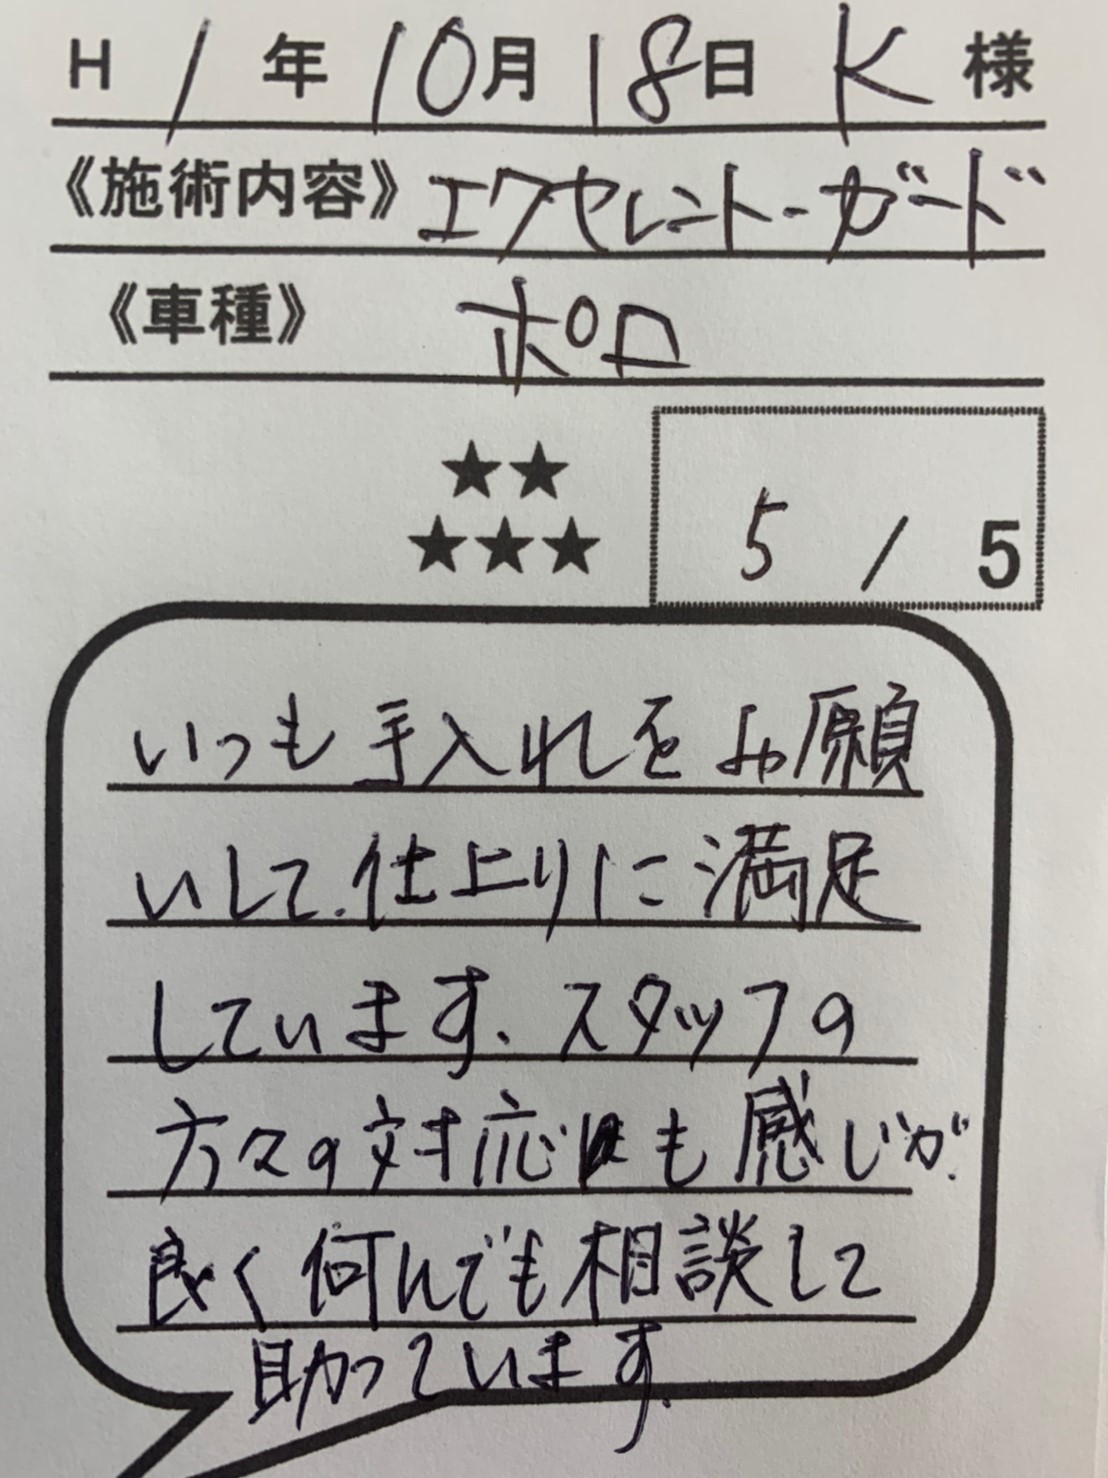 H 1年10月18日 K 様
《施術内容》エクセレント-ガード
《車種》 ポロ
★★
★★★ 5 / 5
いつも手入れをお願
いして、仕上りに満足
しています、スタッフの
方々の対応も感じが
良く何んでも相談して
助かっています。